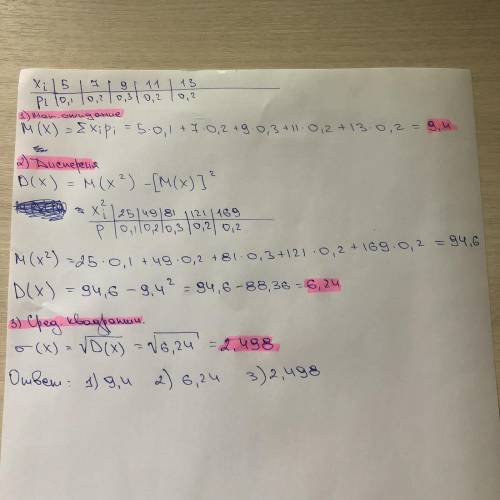 xi | 5 | 7 | 9 | 11 | 13
pi | 0,1 | 0,2 | 0,3 | 0,2 | 0,2
1) Мат. ожидание
M(X) = Σ xi pi = 5·0,1 + 7·0,2 + 9·0,3 + 11·0,2 + 13·0,2 = 9,4
2) Дисперсия
D(X) = M(X²) - [M(X)]²
xi² | 25 | 49 | 81 | 121 | 169
p | 0,1 | 0,2 | 0,3 | 0,2 | 0,2
M(X²) = 25·0,1 + 49·0,2 + 81·0,3 + 121·0,2 + 169·0,2 = 94,6
D(X) = 94,6 - 9,4² = 94,6 - 88,36 = 6,24
3) Сред. квадратич.
σ(X) = √D(X) = √6,24 = 2,498
Ответ: 1) 9,4 2) 6,24 3) 2,498